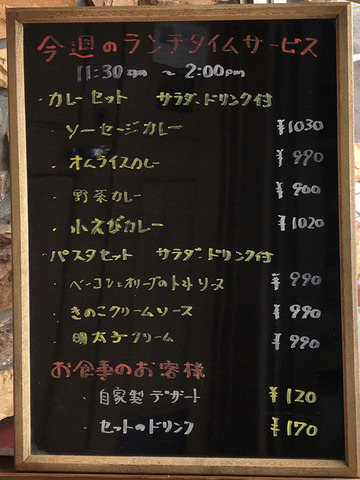 今週のランチタイムサービス
11:30am ~ 2:00pm
・カレーセット サラダ、ドリンク付
・ソーセージカレー ¥1030
・オムライスカレー ¥990
・野菜カレー ¥900
・小えびカレー ¥1020
・パスタセット サラダ・ドリンク付
・ベーコンとオリーブのトマトソース ¥990
・きのこクリームソース ¥990
・明太子クリーム ¥990
お食事のお客様
・自家製デザート ¥120
・セットのドリンク ¥170